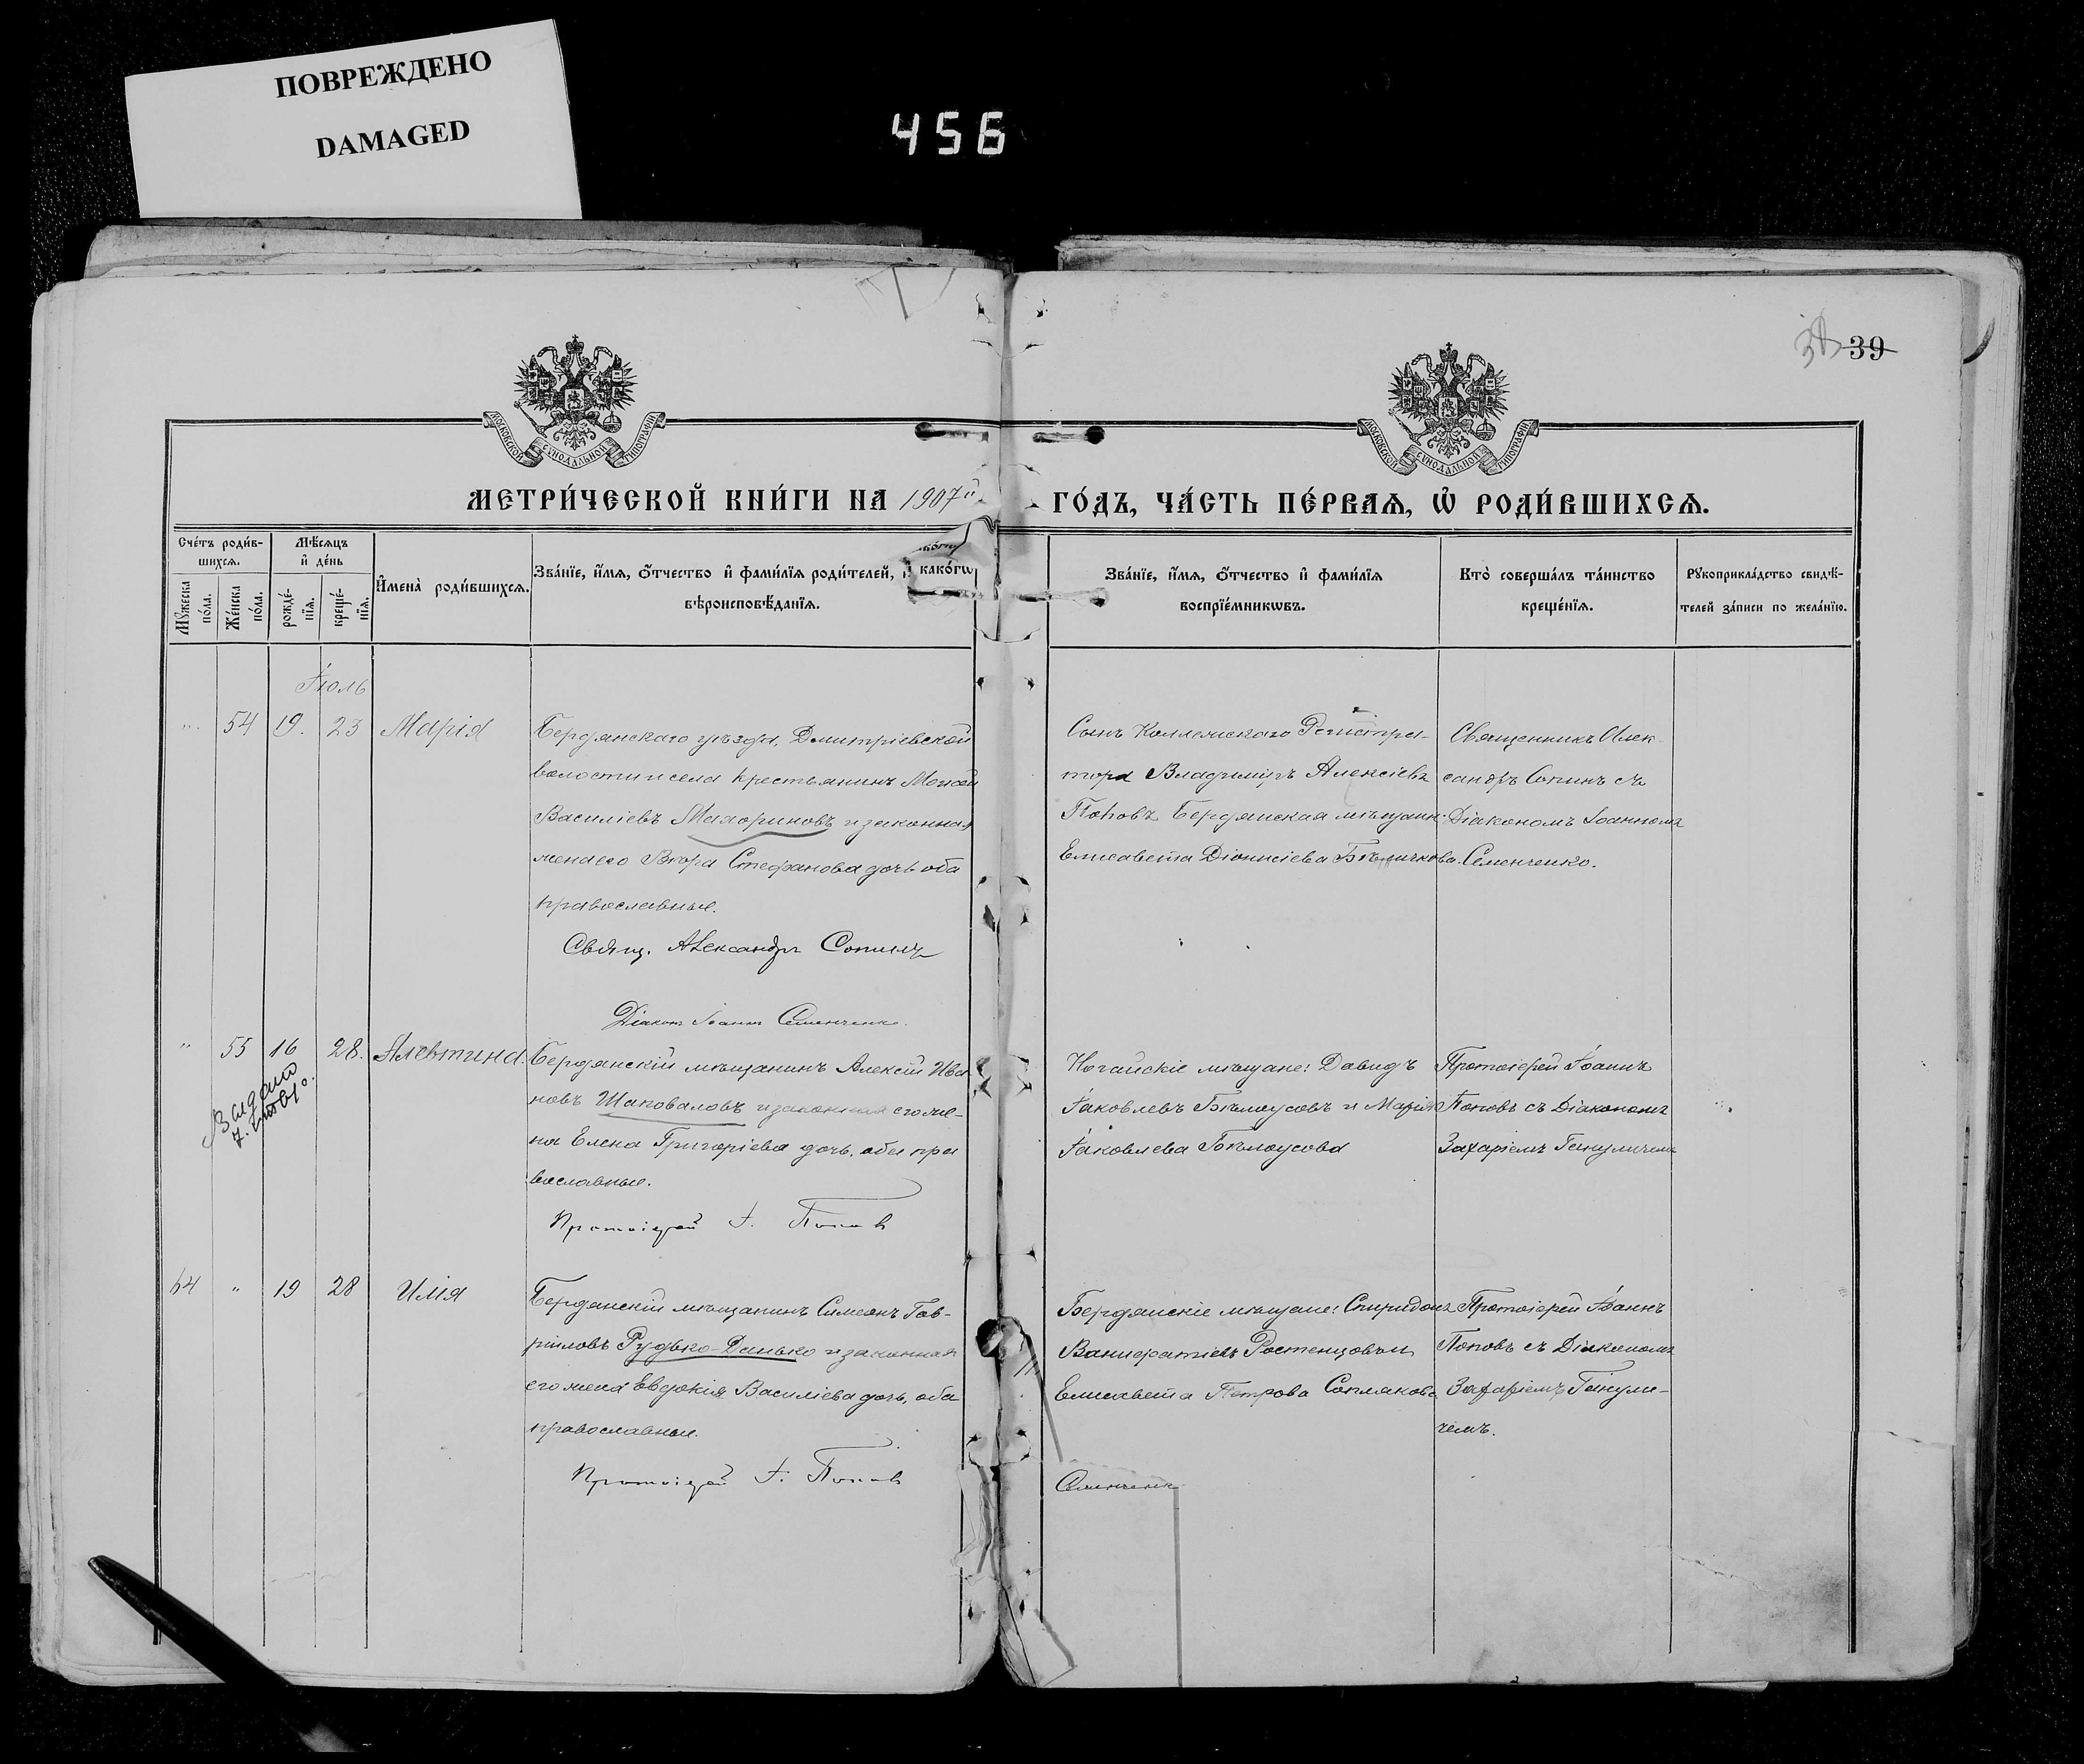 ПОВРЕЖДЕНО
DAMAGED
456
39
МОСКОВСКОЙ СѴНОДАЛЬНОЙ ТИПОГРАФІИ
МОСКОВСКОЙ СѴНОДАЛЬНОЙ ТИПОГРАФІИ
МЕТРИ́ЧЕСКОЙ КНИ́ГИ НА 1907й
ГО́ДЪ, ЧА́СТЬ ПЕ́РВАѦ, Ѡ҆ РОДИ́ВШИХСѦ.
Сче́тъ роди́в-
шихсѧ.
Мꙋжеска по́ла.
Же́нска по́ла.
Мѣ́сѧцъ
и҆ де́нь
рожде́-
нїѧ.
креще́-
нїѧ.
И҆мена̀ роди́вшихсѧ.
Зва́нїе, и҆́мѧ, ѻ҆́тчество и҆ фами́лїѧ роди́телей, и҆ како́гѡ
вѣроисповѣ́данїѧ.
Зва́нїе, и҆́мѧ, ѻ҆́тчество и҆ фами́лїѧ
воспрїе́мникѡвъ.
Кто̀ соверша́лъ та́инство
креще́нїѧ.
Рꙋкоприкла́дство свидѣ́-
телей за́писи по жела́нїю.
Іюль
54 19. 23 Марія
Бердянскаго уѣзда, Дмитріевской
волости и села крестьянинъ Моисей
Василіевъ Махориновъ и законная
жена его Вѣра Стефанова дочь оба
православные.
Свящ. Александръ Сопинъ
Діаконъ Іоаннъ Семенченко.
Сынъ Коллежскаго Регистра-
тора Владиміръ Алексіевъ
Поповъ Бердянская мѣщанк.
Елисавета Діонисіева Бѣличкова.
Священникъ Алек-
сандръ Сопинъ съ
Діакономъ Іоанномъ
Семенченко.
" 55 16 28. Алевтина
Выдано
Бердянскій мѣщанинъ Алексій Ива
новъ Шаповаловъ и законная его же-
на Елена Григоріева дочь, оба пра
вославные.
Протоіерей І. Поповъ
Ногайскіе мѣщане: Давидъ
Іаковлевъ Бѣлоусовъ и Марія
Іаковлева Бѣлоусова
Протоіерей Іоаннъ
Поповъ съ Діакономъ
Захаріемъ Гинуличемъ
64 " 19 28 Илія
Бердянскій мѣщанинъ Симеонъ Гав-
ріиловъ Рудько-Данько и законная
его жена Евдокія Василіева дочь, оба
православные.
Протоіерей І. Поповъ
Бердянскіе мѣщане: Спиридонъ
Ванифатіевъ Ростенцовъ и
Елисавета Петрова Соплякова
Протоіерей Іоаннъ
Поповъ съ Діакономъ
Захаріемъ Гинули-
чемъ.
Семенченко